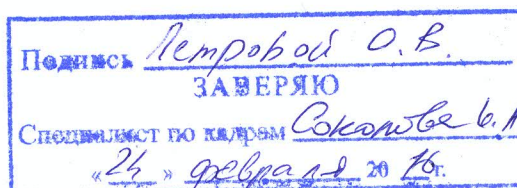 Подпись Петровой О.В.
ЗАВЕРЯЮ
Специалист по кадрам Соколова
«24» февраля 2016 г.